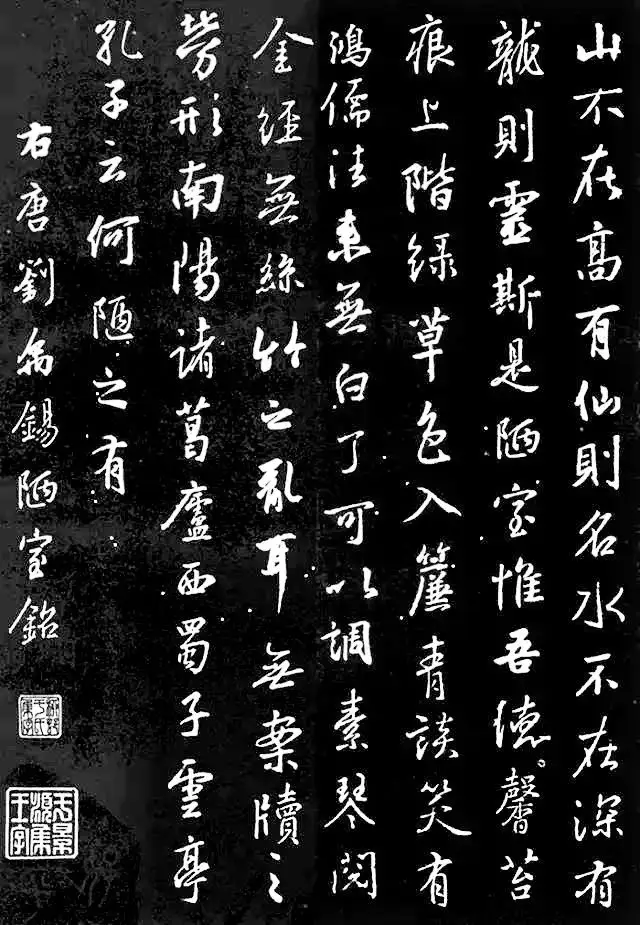 山不在高有仙則名水不在深有
龍則靈斯是陋室惟吾德馨苔
痕上階緑草色入簾青談笑有
鴻儒往來無白丁可以調素琴閱
金經無絲竹之亂耳無案牘之
勞形南陽諸葛廬西蜀子雲亭
孔子云何陋之有
右唐劉禹錫陋室銘